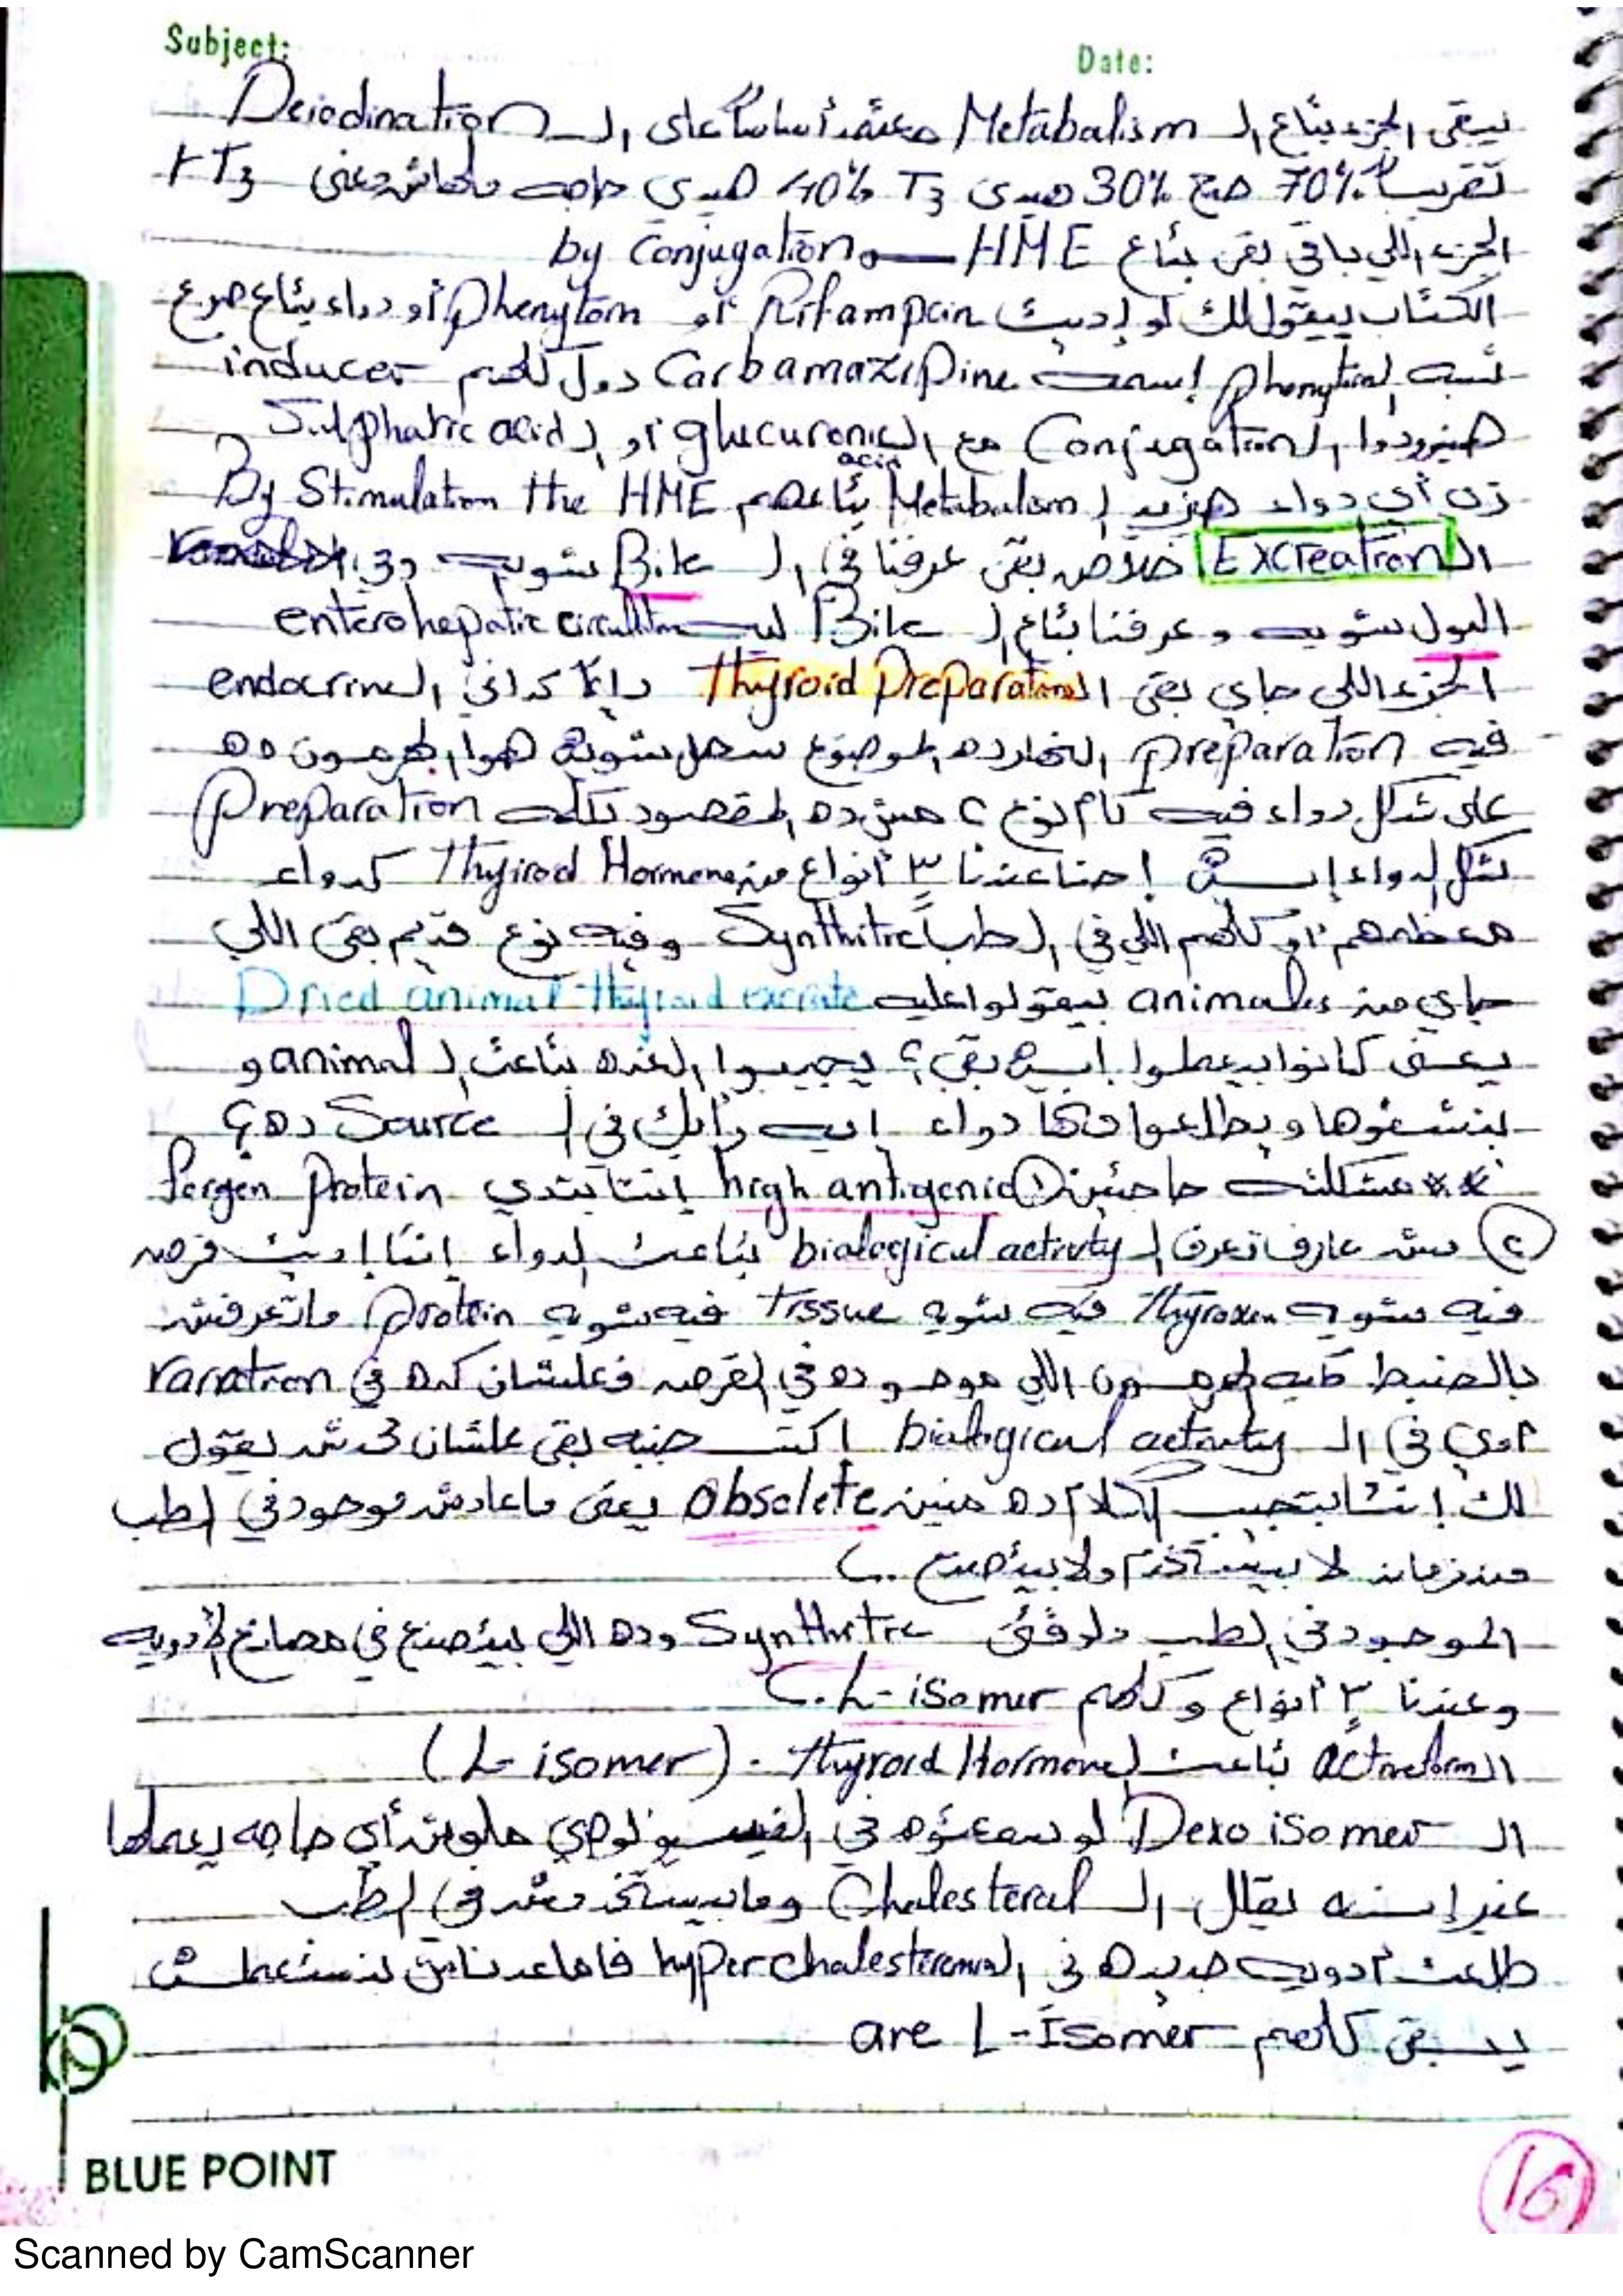 Subject:
Date:
يبقى الجزء بتاع الـ Metabalism معتمد أساساً على الـ Deiodination
تقريباً 70% منهم 30% هيدي T3 40% هيدي حاجه مالهاش معنى rT3
الجزء اللي باقي بقى بتاع HME by Conjugation
الكتاب بيقول لك لو إديت Rifampcin أو phenyton أو دواء بتاع صرع
شبه الـ phenyton إسمه Carbamazipine دول كلهم inducer
هيزودوا الـ Conjugation مع الـ glucuronic acid أو الـ Sulphatic acid
زن أي دواء هيزيد الـ Metabalism بتاعهم By Stimulation the HME
الـ Excreation خلاص بقى عرفنا في الـ Bile شويه وفي الـ
البول شويه وعرفنا بتاع الـ Bile ليه enterohepatic circultion
الجزء اللي جاي بقى الـ Thyroid Preparation دايماً كده في الـ endocrine
فيه preparation الخارده الموضوع سهل شويه هوا الهرمون ده
على شكل دواء فيه كام نوع ؟ مش ده المقصود بكلمه Preparation
شكل الدواء إيش إحنا عندنا ٣ أنواع من Thyirod Hormone كدواء
معظمهم أو كلهم اللي في الطب Synthitic وفيه نوع قديم بقى اللي
جاي من animales بيقولوا عليه Dried animal thyroid excrate
يعني كانوا بيعملوا إيه بقى ؟ يجيبوا الغده بتاعت الـ animal و
ينشفوها ويطلعوا منها دواء إيه رأيك في الـ Source ده ؟
** مشكلته حاجتين ① high antigenic إنتا بتدي forgen protein
② مش عارف تعرف الـ biological activity بتاعت الدواء إنتا إديت قرص
فيه شويه Thyroxin فيه شويه tissue فيه شويه protein ماتعرفش
بالضبط كميه الهرمون اللي موجوده في القرص فعلشان كده في variation
قوي في الـ biological activity اكتب جنبه بقى علشان محدش يقول
لك إنتا بتجيب الكلام ده منين obsolete يعني ماعادش موجود في الطب
من زمان لا بيستخدم ولا بيتصنع ..
الموجود في الطب دلوقتي Synthitic وده اللي بيتصنع في مصانع الأدويه
وعندنا ٣ أنواع وكلهم L-isomer
الـ active form بتاعت الـ Thyroid Hormone - (L-isomer)
الـ Dexo isomer لو سمعتوه في الفسيولوجي ملوش أي حاجه يعملها
غير إنه يقلل الـ Chalesteral ومابيستخدمش في الطب
طلعت أدويه جديده في الـ hyper chalesteremia فاماعدناش بنستعملش
يبقى كلهم are L-Isomer
BLUE POINT
16
Scanned by CamScanner